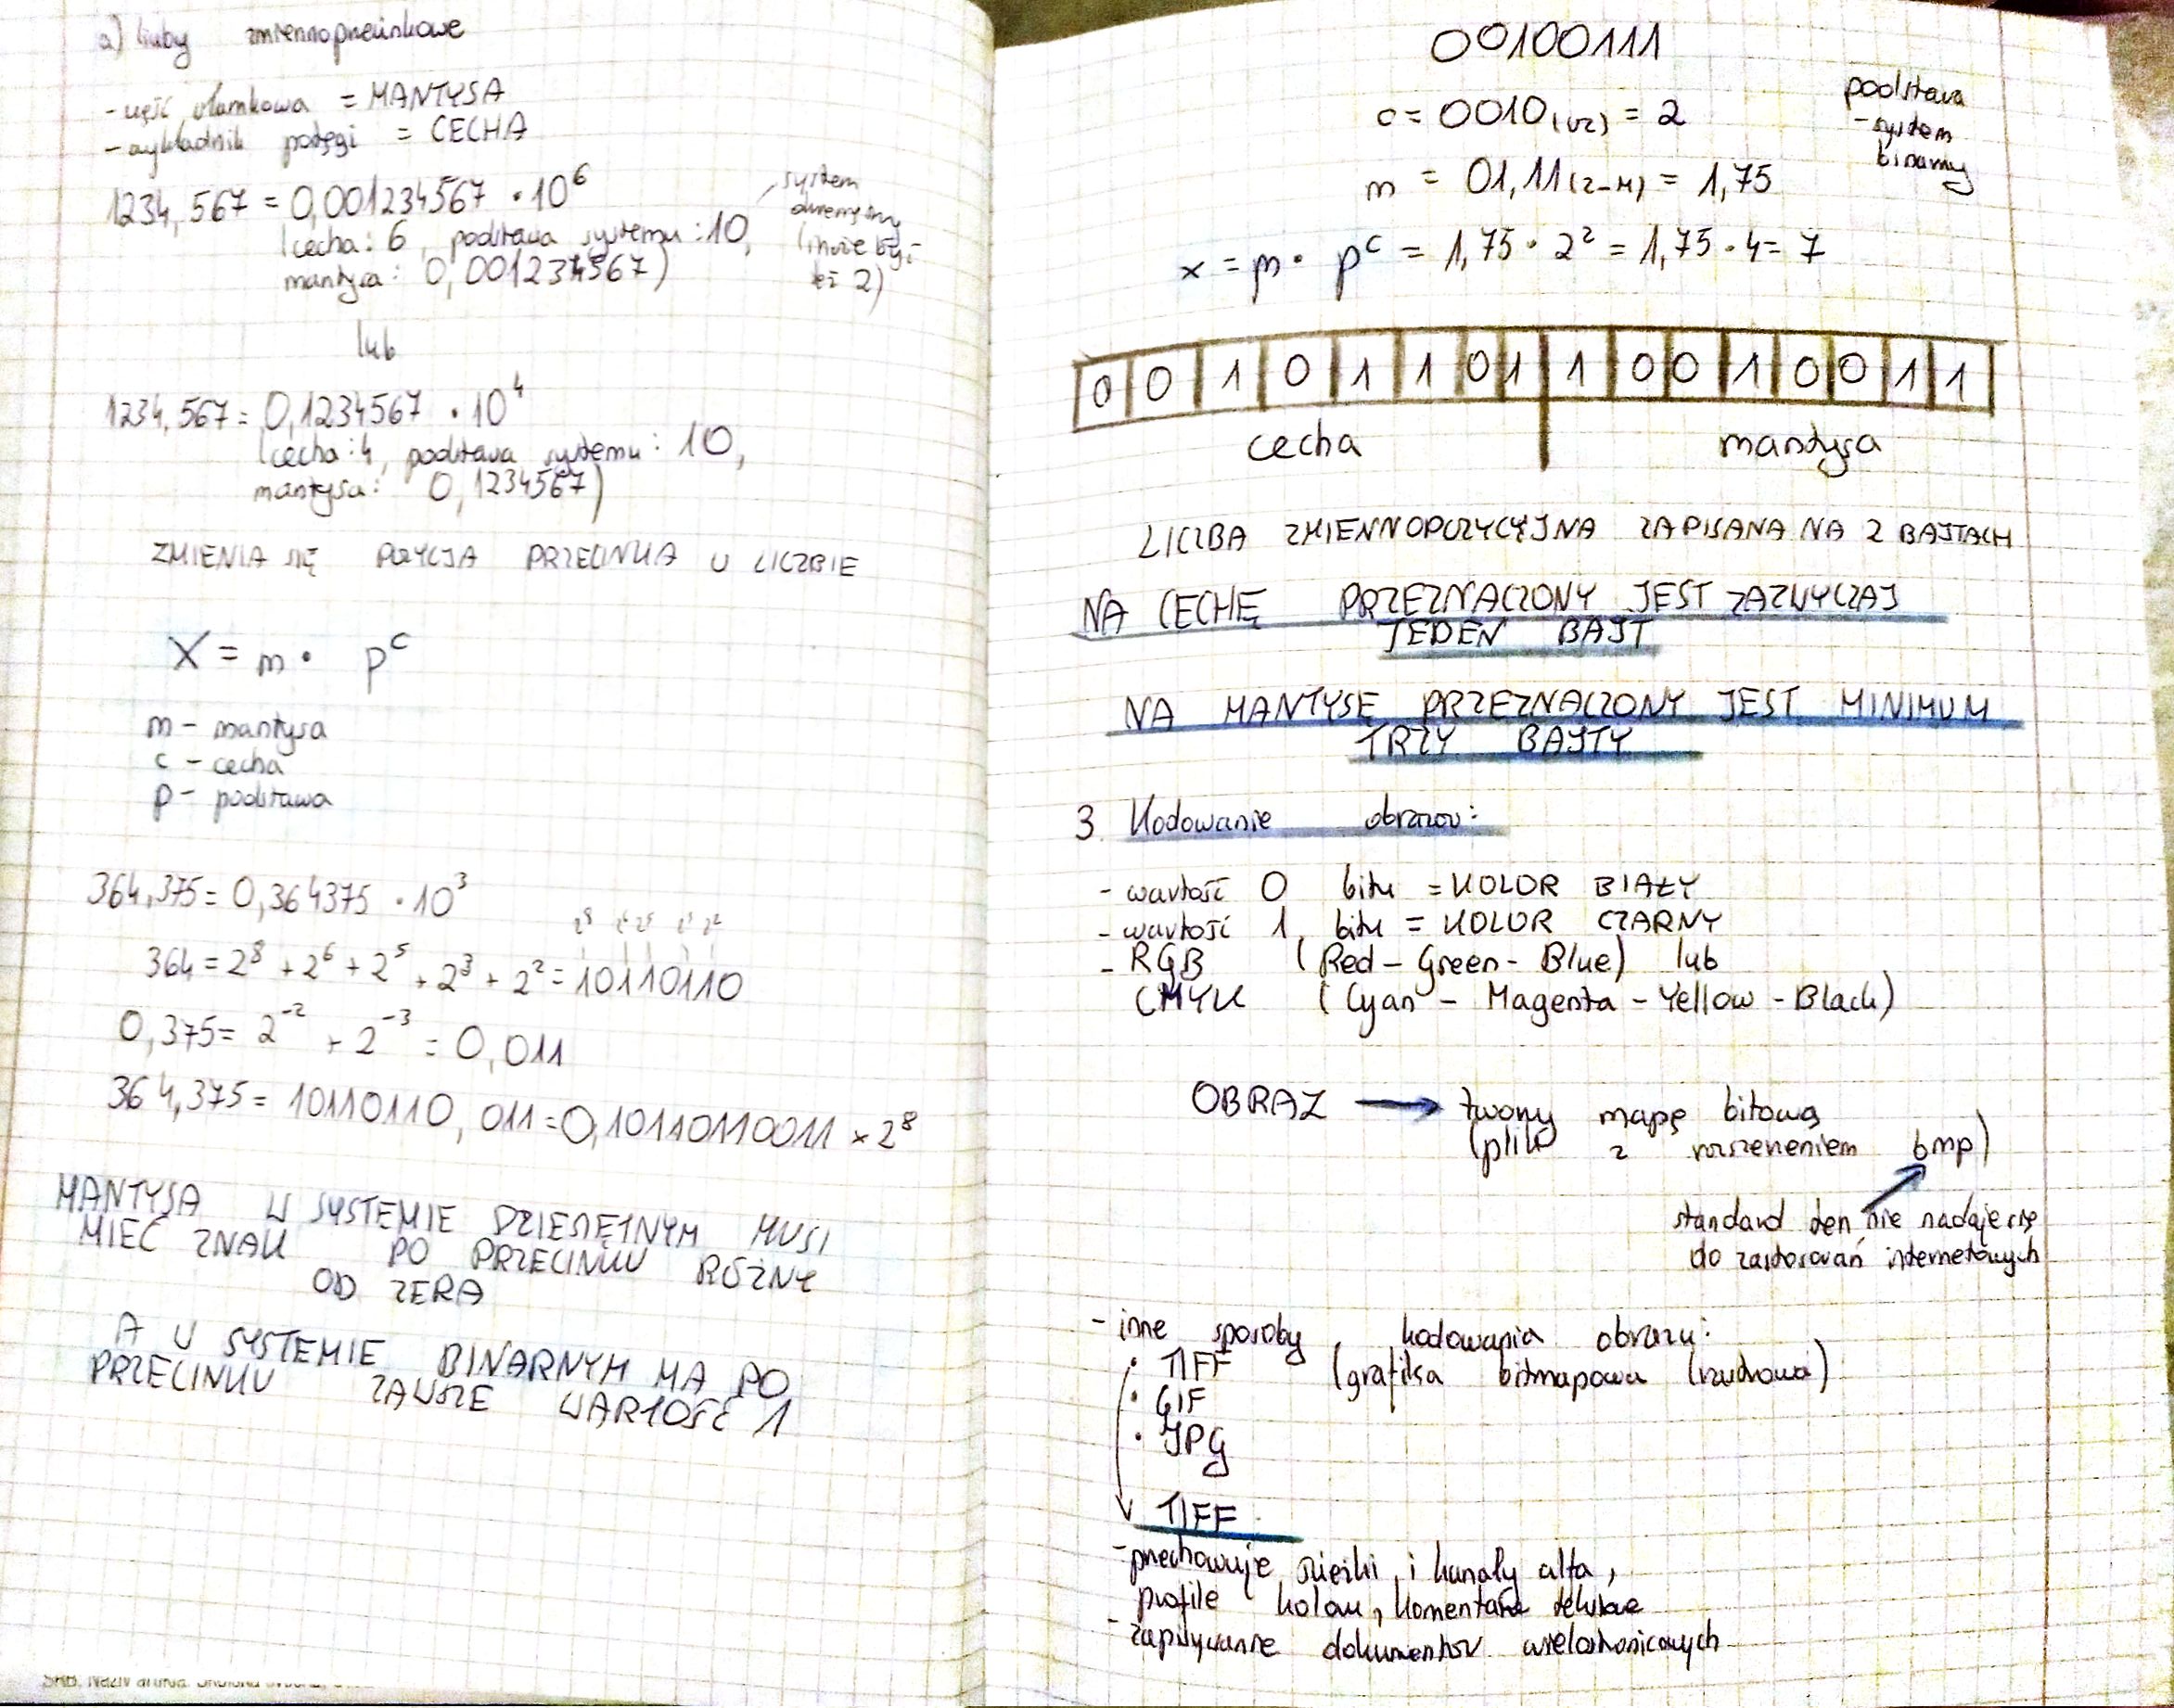 a) liczby zmiennoprzecinkowe
- część ułamkowa = MANTYSA
- wykładnik potęgi = CECHA
1234,567 = 0,001234567 · 10⁶
(cecha: 6, podstawa systemu: 10,
mantysa: 0,001234567)
system
dziesiętny
(może być
też 2)
lub
1234,567 = 0,1234567 · 10⁴
(cecha: 4, podstawa systemu: 10,
mantysa: 0,1234567)
ZMIENIA SIĘ POZYCJA PRZECINKA W LICZBIE
X = m · pᶜ
m - mantysa
c - cecha
p - podstawa
364,375 = 0,364375 · 10³
2⁸ 2⁶ 2⁵ 2³ 2²
364 = 2⁸ + 2⁶ + 2⁵ + 2³ + 2² = 10110110
0,375 = 2⁻² + 2⁻³ = 0,011
364,375 = 10110110,011 = 0,10110110011 × 2⁸
MANTYSA W SYSTEMIE DZIESIĘTNYM MUSI
MIEĆ ZNAK PO PRZECINKU RÓŻNY
OD ZERA
A W SYSTEMIE BINARNYM MA PO
PRZECINKU ZAWSZE WARTOŚĆ 1
00100111
c = 0010(U2) = 2
m = 01,11(Z-M) = 1,75
podstawa
- system
binarny
x = m · pᶜ = 1,75 · 2² = 1,75 · 4 = 7
0 0 1 0 1 1 0 1 1 0 0 1 0 0 1 1
cecha mantysa
LICZBA ZMIENNOPOZYCYJNA ZAPISANA NA 2 BAJTACH
NA CECHĘ PRZEZNACZONY JEST ZAZWYCZAJ
JEDEN BAJT
NA MANTYSĘ PRZEZNACZONY JEST MINIMUM
TRZY BAJTY
3. Kodowanie obrazów:
- wartość 0 bitu = KOLOR BIAŁY
- wartość 1 bitu = KOLOR CZARNY
- RGB (Red - Green - Blue) lub
CMYK (Cyan - Magenta - Yellow - Black)
OBRAZ → tworzy mapę bitową
(plik z rozszerzeniem bmp)
standard ten nie nadaje się
do zastosowań internetowych
- inne sposoby kodowania obrazu:
· TIFF (grafika bitmapowa (rastrowa)
· GIF
· JPG
TIFF
- przechowuje ścieżki i kanały alfa,
profile koloru, komentarze tekstowe
- zapisywanie dokumentów wielostronicowych